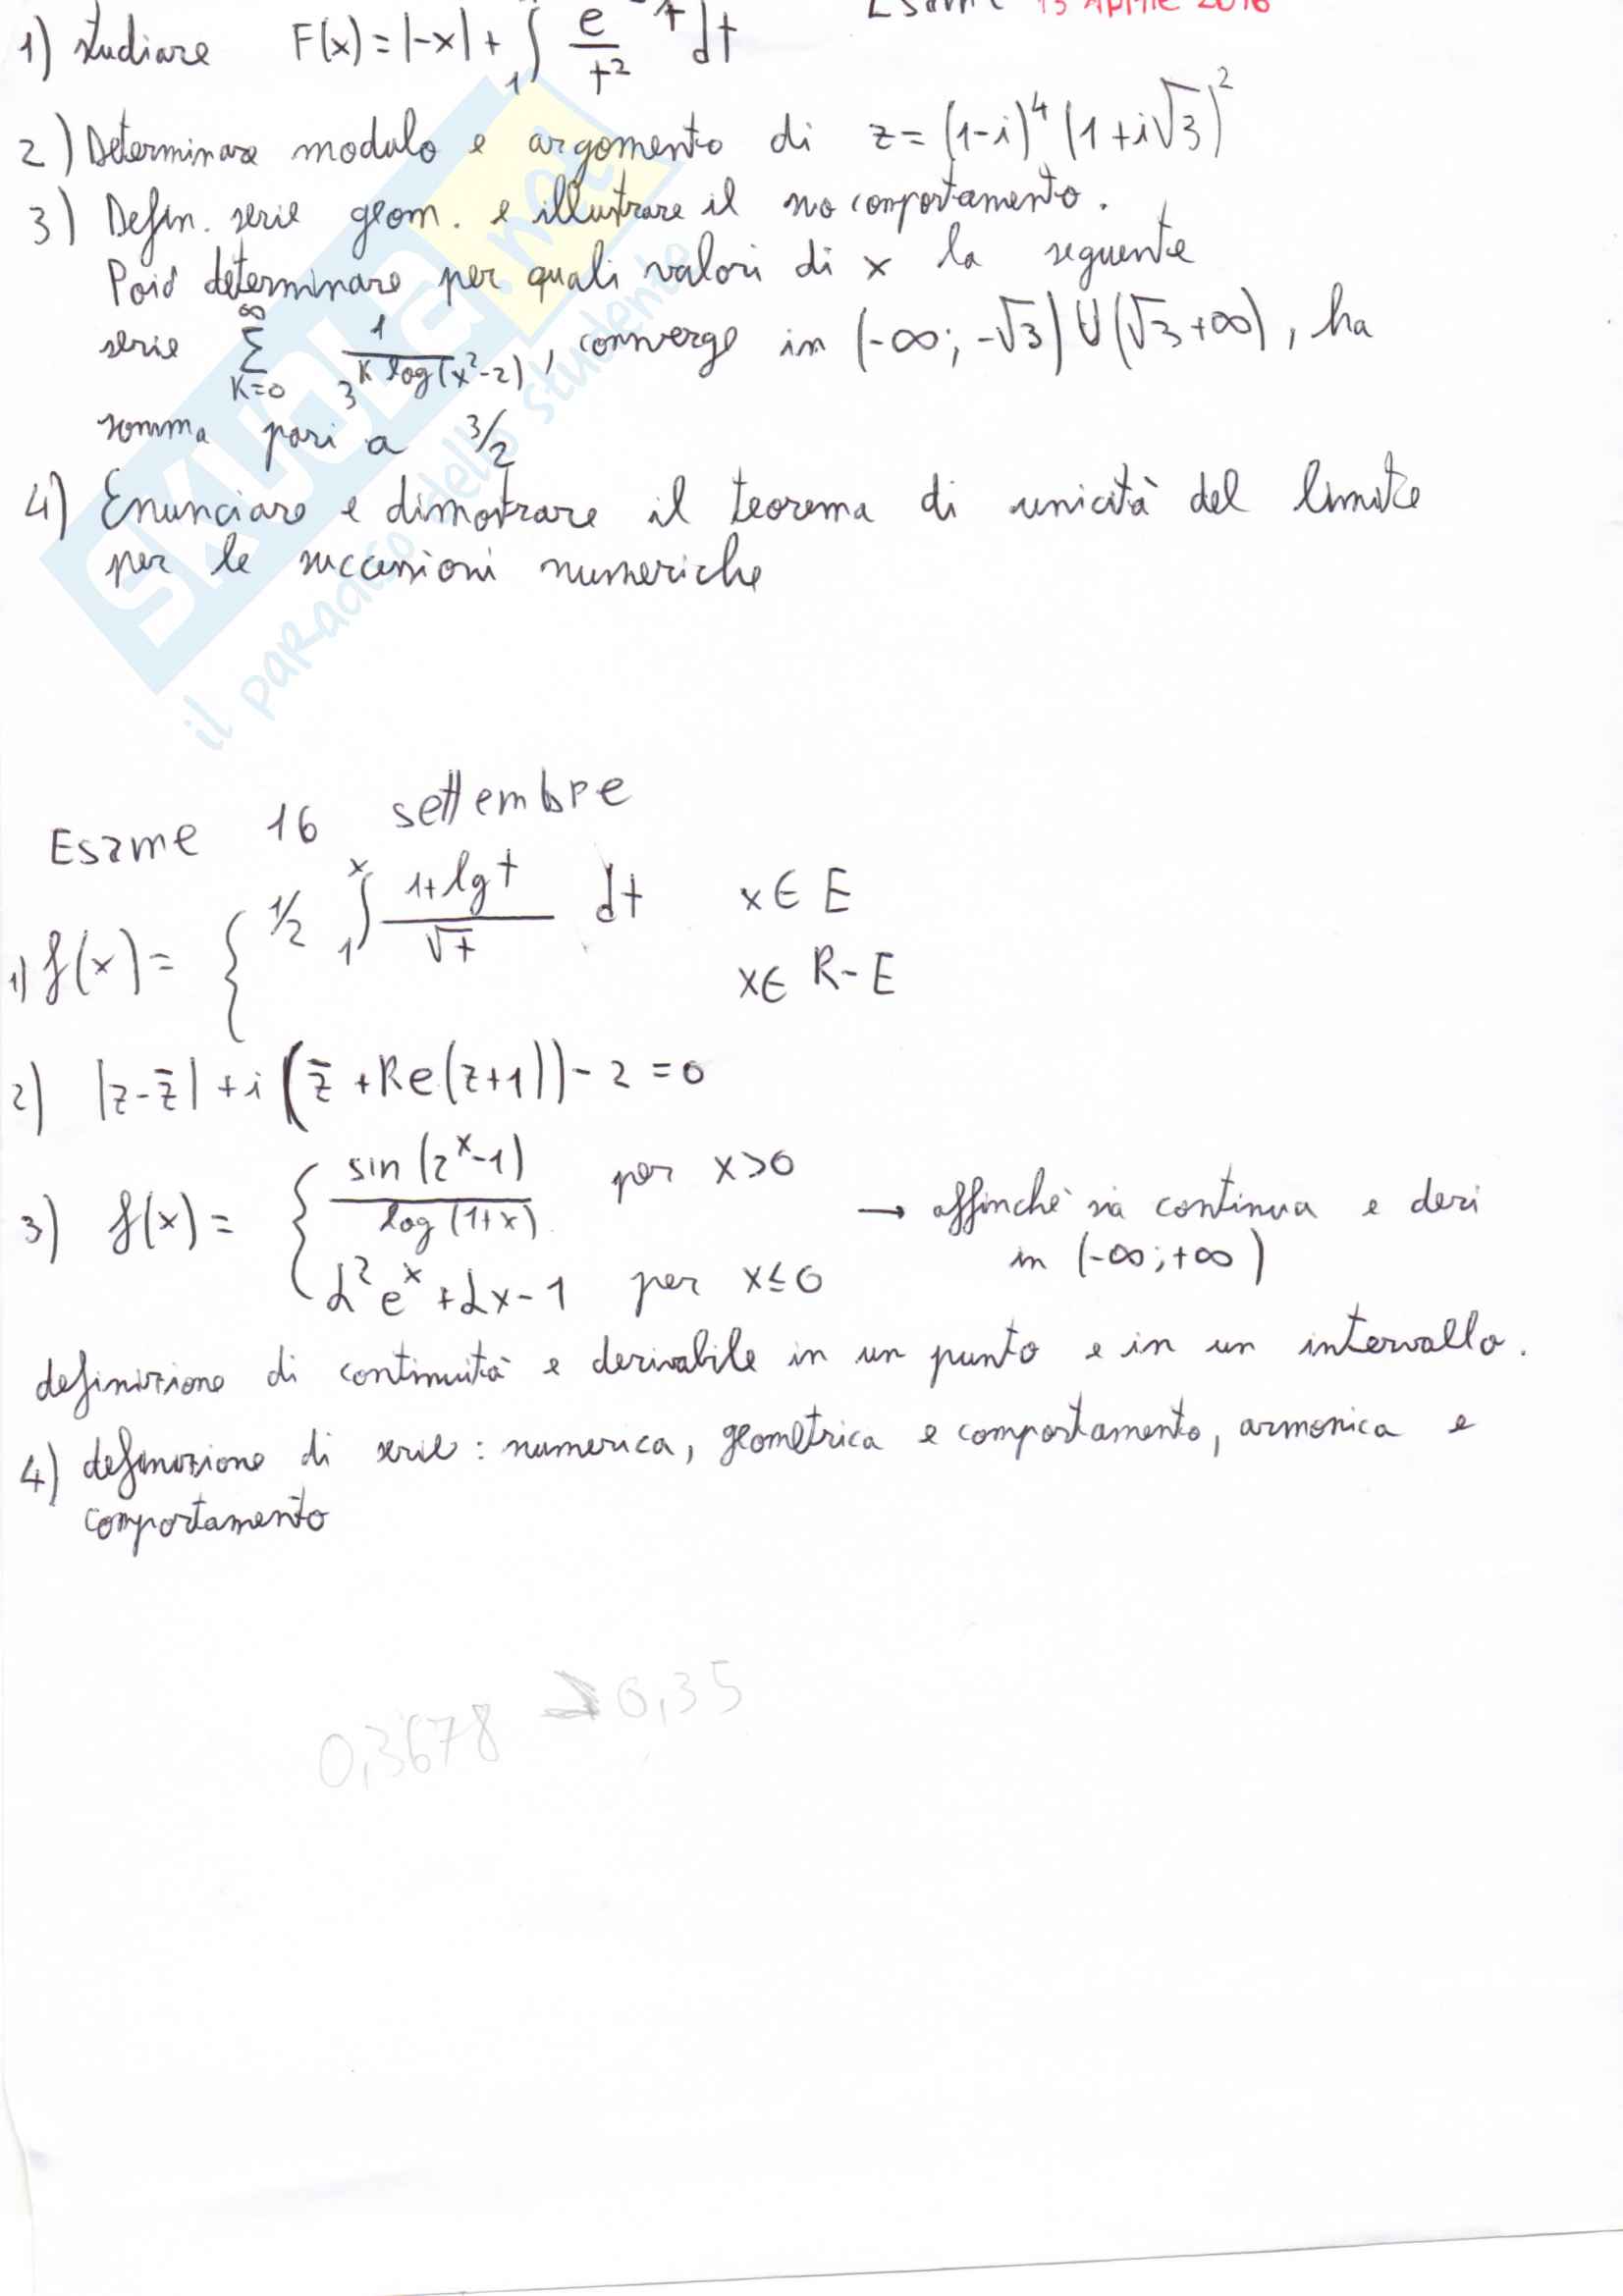 Esame 15 Aprile 2016
1) studiare F(x) = |-x| + ∫₁ e^-t/t² dt
2) Determinare modulo e argomento di z = (1-i)⁴ (1+i√3)²
3) Defin. serie geom. e illustrare il suo comportamento.
Poi determinare per quali valori di x la seguente
serie ∑_{K=0}^{∞} 1/3^{K log(x²-2)}, converge in (-∞; -√3) U (√3 +∞), ha
somma pari a 3/2
4) Enunciare e dimostrare il teorema di unicità del limite
per le successioni numeriche
SKUOLA.net
il paradiso dello studente
Esame 16 settembre
1) f(x) = { 1/2 ∫₁ˣ (1+lg t)/√t dt x∈E
x∈ R-E
2) |z-z̄| + i (z̄ + Re(z+1)) - 2 = 0
3) f(x) = { sin(2ˣ-1)/log(1+x) per x>0
α²eˣ + αx - 1 per x≤0
→ affinchè sia continua e deri
in (-∞; +∞)
definizione di continuità e derivabile in un punto e in un intervallo.
4) definizione di serie: numerica, geometrica e comportamento, armonica e
comportamento
0,3678 → 0,35